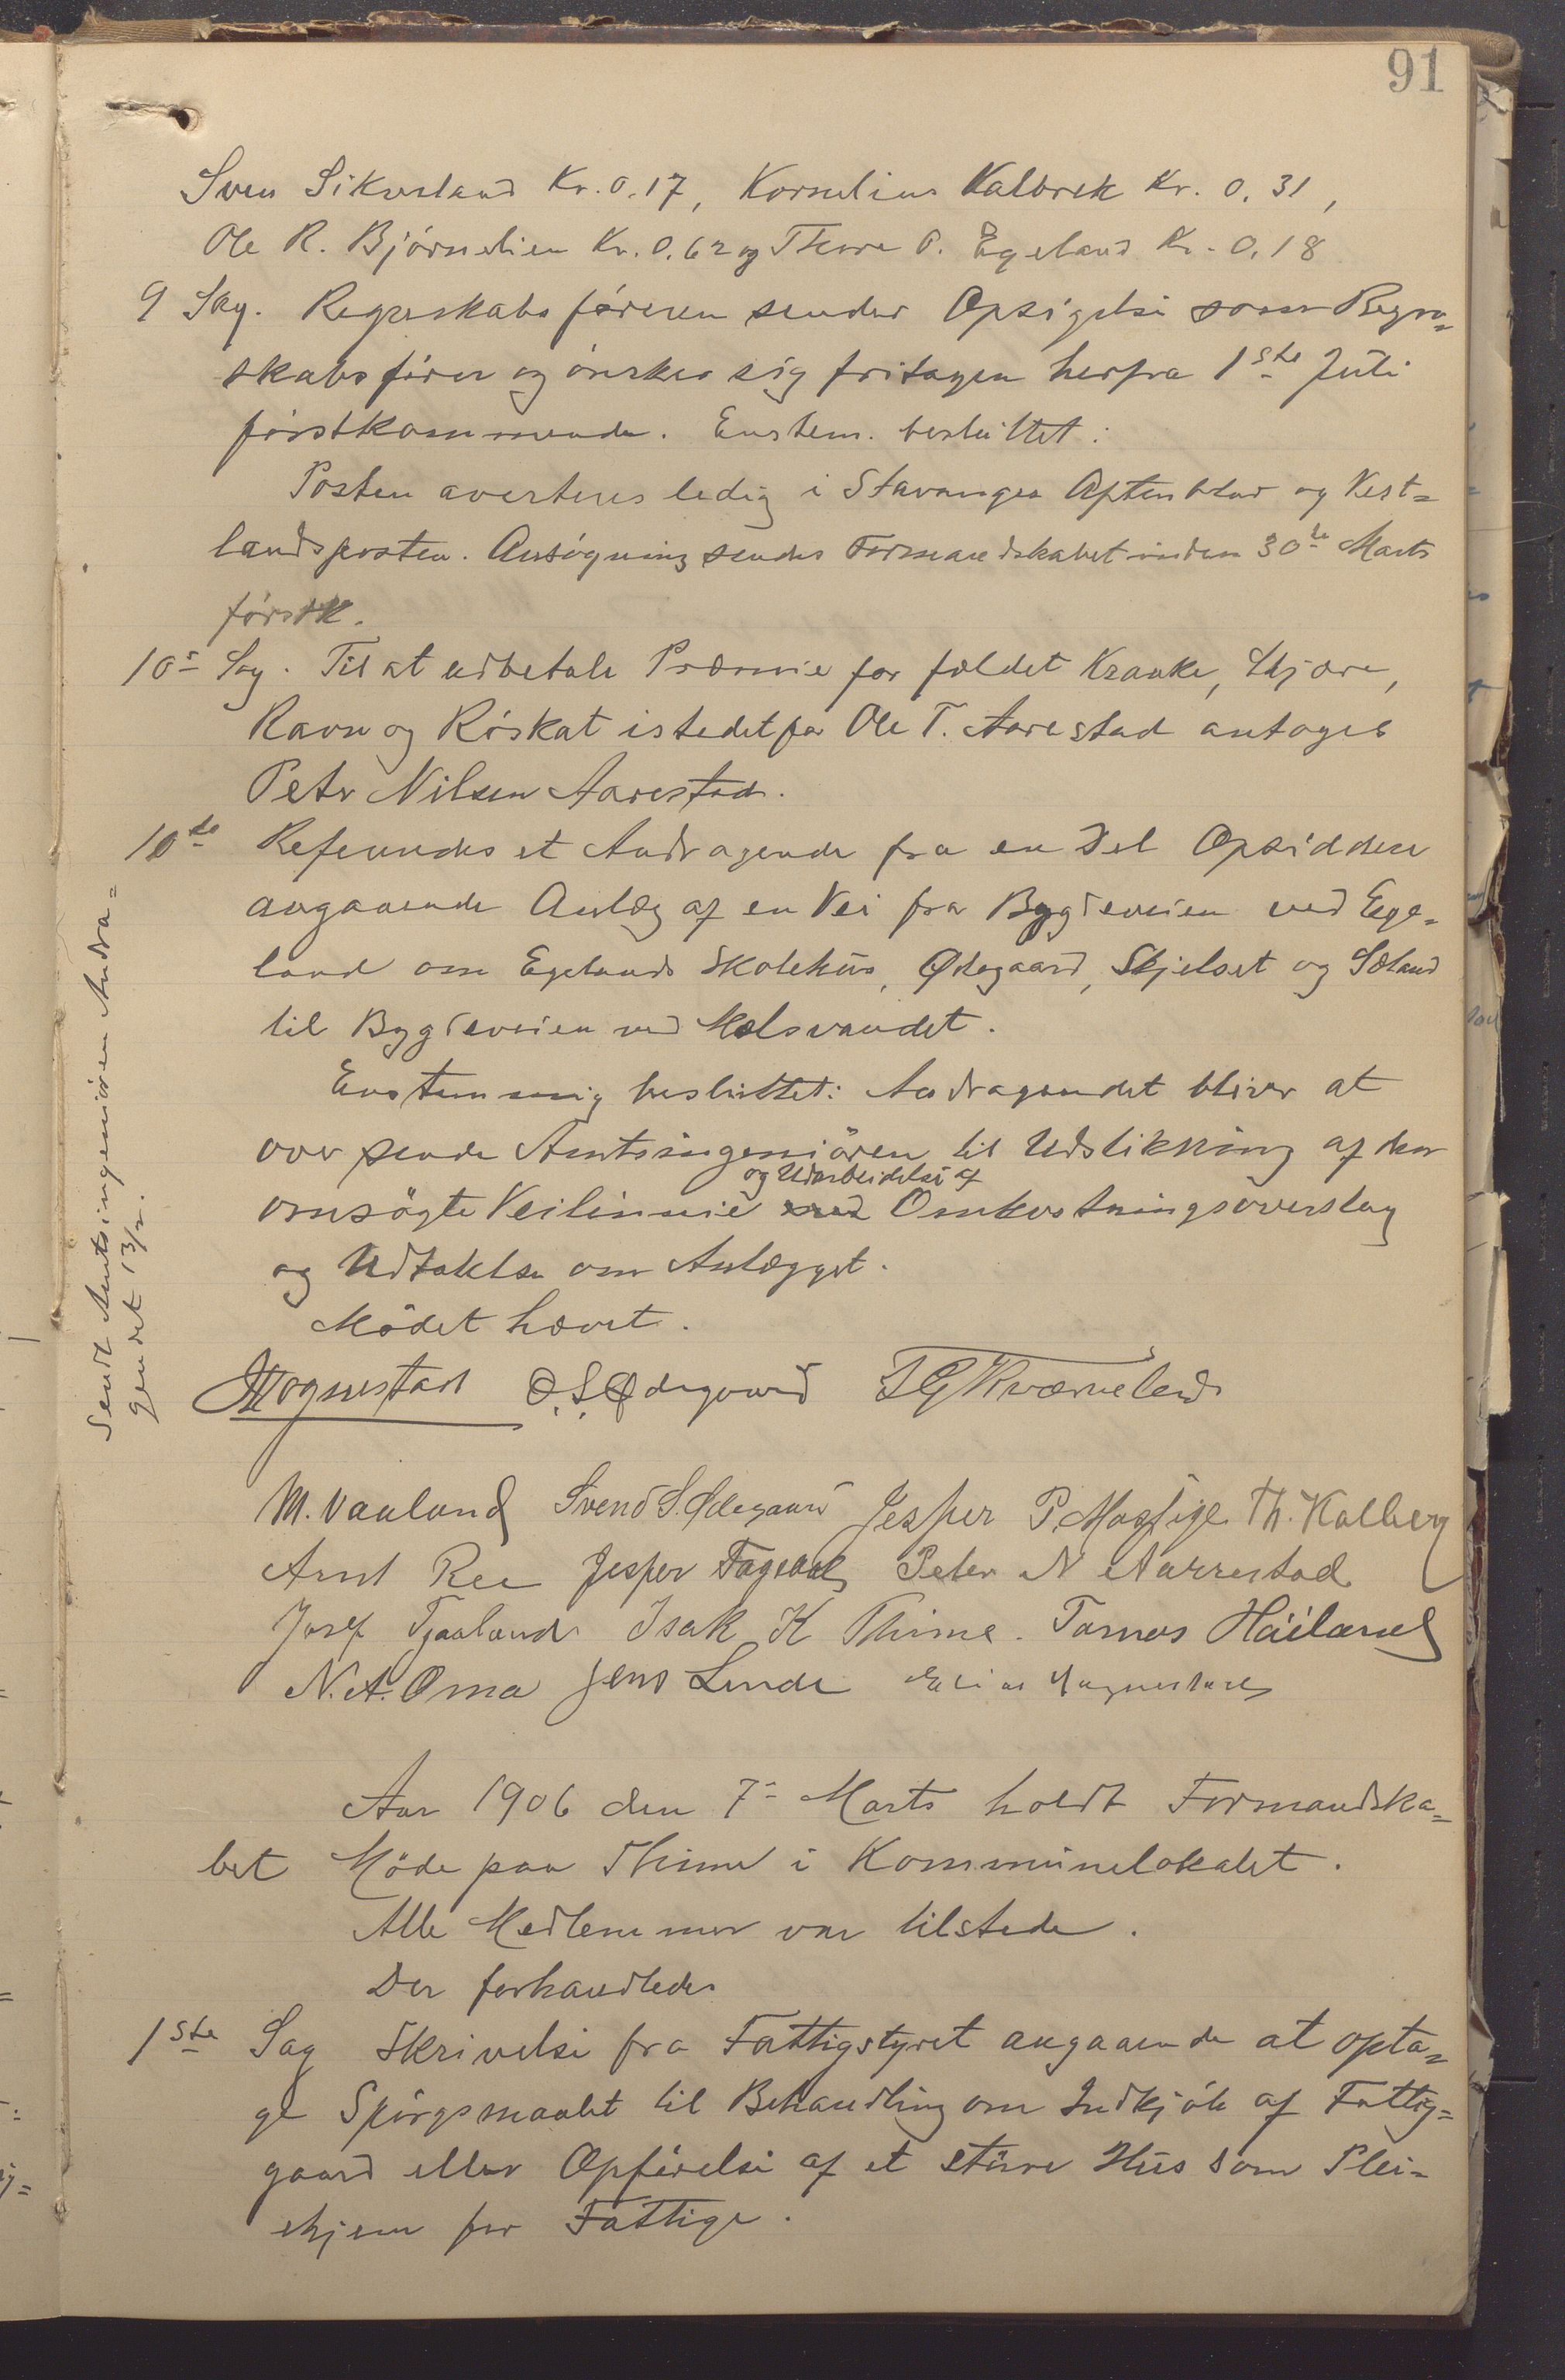 91
Sven Sikvaland Kr. 0.17, Kornelius Kalbrek Kr. 0.31,
Ole R. Bjørnelien Kr. 0.62 og Thore P. Egeland Kr. 0.18
9 Sag. Regnskabsføreren sender Opsigelse som Regn=
skabsfører og ønsker sig fritagen herfra 1ste Juli
førstkommende. Enstem. besluttet:
Posten averteres ledig i Stavanger Aftenblad og Vest=
landsposten. Ansøgning sendes Formandskabet inden 30te Marts
førstk.
10de Sag. Til at udbetale Præmie for fældet Kraake, Skjære,
Ravn og Røskat istedetfor Ole T. Aarestad antoges
Peter Nilsen Aarestad.
10de Refereredes et Andragende fra en Del Opsiddere
angaaende Anlæg af en Vei fra Bygdeveien ved Ege=
land om Egelands Skolehus, Ødegaard, Skjelset og Sæland
til Bygdeveien ved Mælsvandet.
Enstemmig besluttet: Andragendet bliver at
oversende Amtsingeniøren til Udstikning af den
og Udarbeidelse af
omsøgte Veilinnie med Omkostningsoverslag
og Udtalelse om Anlægget.
Mødet hævet.
Sendt Amtsingeniøren Andra=
gendet 13/2.
Hognestad O. S. Ødegaard S G Kværneland
M. Vaaland Svend S. Ødegaard Jesper P. Mossige Th. Kalberg
Arnt Ree Jesper Tagebak Peter N Aarrestad
Josef Tjaaland Isak K Thime. Tørres Høiland
N. A. Oma Jens Lende Elias Hognestad
Aar 1906 den 7de Marts holdt Formandska=
bet Møde paa Thime i Kommunelokalet.
Alle Medlemmer var tilstede.
Der forhandledes
1ste Sag Skrivelse fra Fattigstyret angaaende at opta=
ge Spørgsmaalet til Behandling om Indkjøb af Fattig=
gaard eller Opførelse af et større Hus som Plei=
ehjem for Fattige.